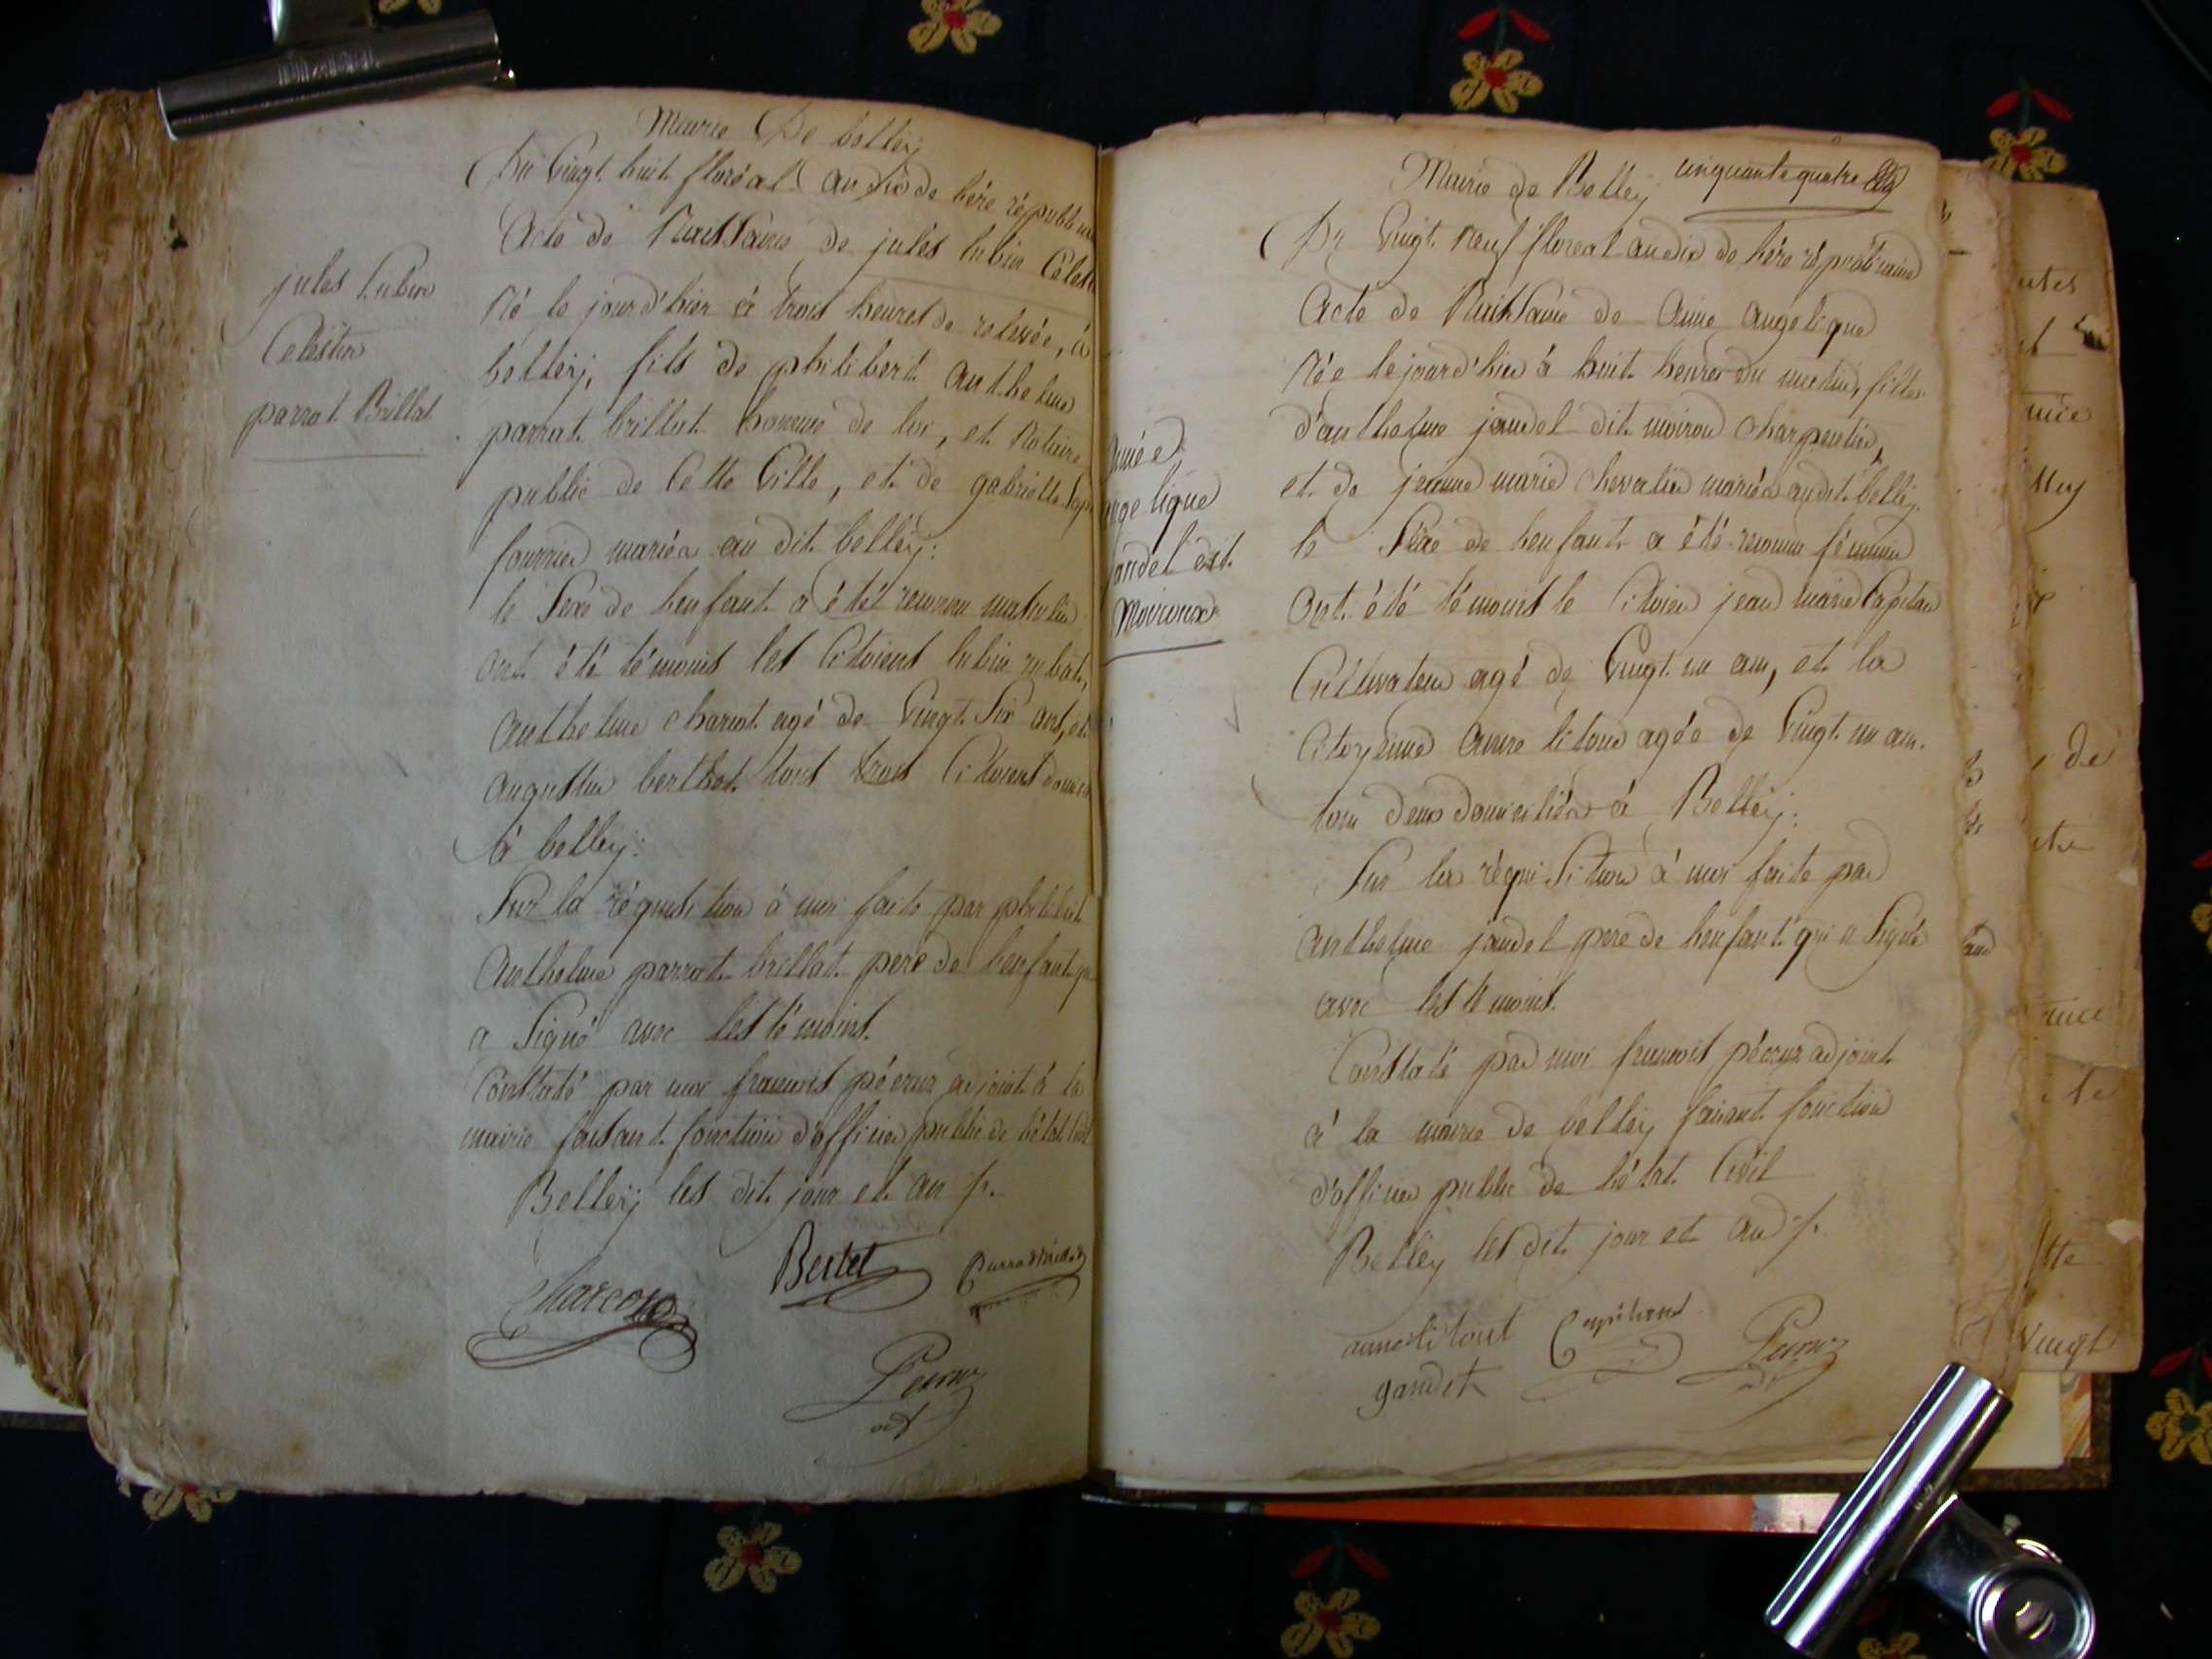 Mairie De belley
Du Vingt huit floréal an dix de l'ére républi
Acte de Naissance de jules lubin Celes
Né le jour d'hier à trois heures de relevée, à
belley, fils de philibert anthelme
parrat brillat homme de loi, et Notaire
public de Cette Ville, et de gabrielle
fournier mariés au dit belley:
le Sexe de l'enfant a été reconnu masculin
ont été témoins les Citoiens lubin rubat,
anthelme charcot agé de Vingt Six ans, et
augustin berthet tous trois Citoiens
à belley:
Sur la réquisition à moi faite par philibert
Anthelme parrat brillat pere de l'enfant
a Signé avec les témoins.
Constaté par moi francois pécruz adjoint à la
mairie faisant fonction d'officier public de l'état
Belley les dit jour et an
jules Lubin
Celestin
parrat Brillat
Charcot
Bertet
Parrat Brillat
Mairie de Belley cinquante quatre
Du Vingt Neuf floreal an dix de l'ére républicaine
Acte de Naissance de Aimé angelique
Née le jour d'hier à huit heures du matin, fille
d'anthelme jandel dit moiroud charpentier,
et de jeanne marie chevalier mariés au dit belley.
le Sexe de l'enfant a été reconnu féminin
Ont été témoins le Citoien jean marie Capitan
Cultivateur agé de Vingt un ans, et la
Citoyenne anne litoud agée de Vingt un ans.
tous deux domiciliés à Belley:
Sur la réquisition à moi faite par
anthelme jandel pere de l'enfant qui a Signé
avec les témoins.
Constaté par moi francois pécruz adjoint
à la mairie de belley faisant fonction
d'officier public de l'état Civil
Belley les dit jour et an
angelique
jandel dit
anne litout
gandet
Vingt